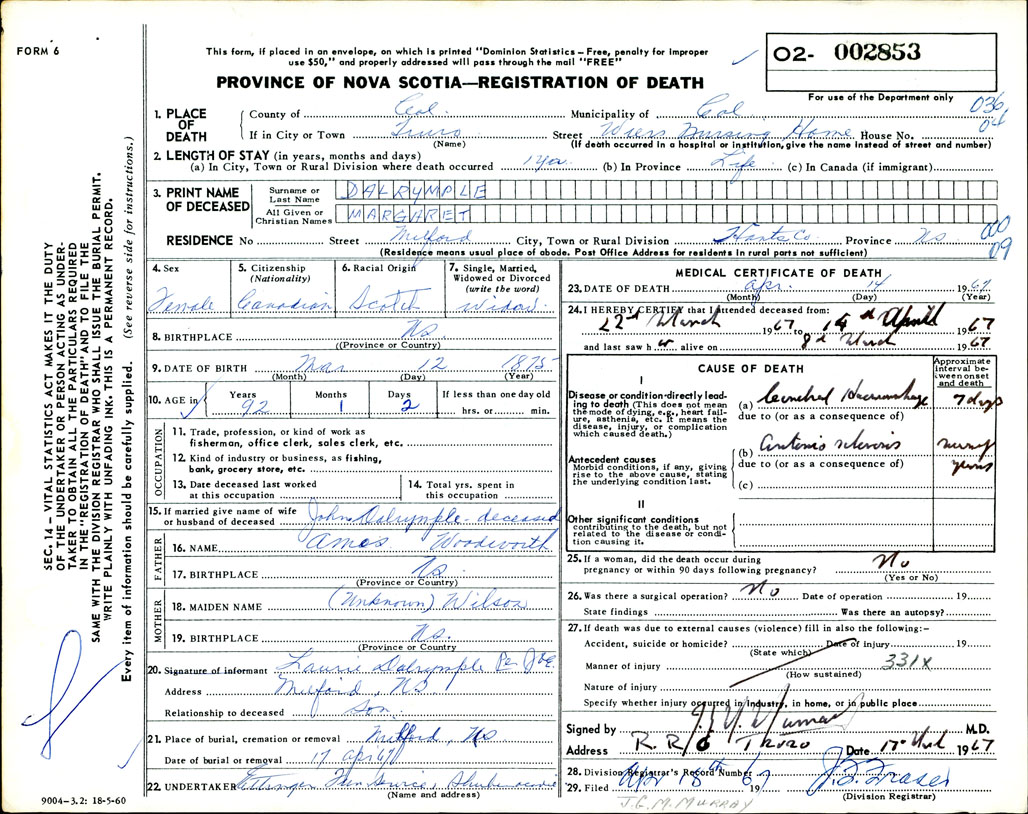 FORM 6
This form, if placed in an envelope, on which is printed "Dominion Statistics – Free, penalty for improper
use $50," and properly addressed will pass through the mail "FREE"
PROVINCE OF NOVA SCOTIA—REGISTRATION OF DEATH
O2- 002853
For use of the Department only
036
04
1. PLACE OF DEATH
County of Col. Municipality of Col
If in City or Town Truro Street Wiers Nursing Home House No.
(Name) (If death occurred in a hospital or institution, give the name instead of street and number)
2. LENGTH OF STAY (in years, months and days)
(a) In City, Town or Rural Division where death occurred 1 yr. (b) In Province Life (c) In Canada (if immigrant)
3. PRINT NAME OF DECEASED
Surname or Last Name DALRYMPLE
All Given or Christian Names MARGARET
RESIDENCE No Street Milford City, Town or Rural Division Hants Co. Province NS
000
09
(Residence means usual place of abode. Post Office Address for residents in rural parts not sufficient)
4. Sex
Female
5. Citizenship (Nationality)
Canadian
6. Racial Origin
Scotch
7. Single, Married, Widowed or Divorced (write the word)
Widow
8. BIRTHPLACE Ns
((Province or Country)
9. DATE OF BIRTH Mar 12 1875
(Month) (Day) (Year)
10. AGE in Years Months Days If less than one day old
92 1 2 hrs. or min.
OCCUPATION
11. Trade, profession, or kind of work as
fisherman, office clerk, sales clerk, etc.
12. Kind of industry or business, as fishing,
bank, grocery store, etc.
13. Date deceased last worked at this occupation
14. Total yrs. spent in this occupation
15. If married give name of wife or husband of deceased John Dalrymple - deceased
FATHER
16. NAME Amos Woodworth
17. BIRTHPLACE Ns
(Province or Country)
MOTHER
18. MAIDEN NAME (Unknown) Wilson
19. BIRTHPLACE Ns.
(Province or Country)
20. Signature of informant Laurie Dalrymple Per
Address Milford, NS
Relationship to deceased Son
21. Place of burial, cremation or removal Milford, Ns
Date of burial or removal 17 Apr 67
22. UNDERTAKER Ettinger Shubenacadie
(Name and address)
MEDICAL CERTIFICATE OF DEATH
23. DATE OF DEATH Apr. 14 1967
(Month) (Day) (Year)
24. I HEREBY CERTIFY that I attended deceased from:
22nd March 1967 to 14th April 1967
and last saw h alive on 8th March 1967
CAUSE OF DEATH
Approximate interval between onset and death
I
Disease or condition directly leading to death (This does not mean the mode of dying, e.g., heart failure, asthenia, etc. It means the disease, injury, or complication which caused death.)
(a) Cerebral Haemorrhage 7 days
due to (or as a consequence of)
Antecedent causes
Morbid conditions, if any, giving rise to the above cause, stating the underlying condition last.
(b) Arteriosclerosis many years
due to (or as a consequence of)
(c)
II
Other significant conditions
contributing to the death, but not related to the disease or condition causing it.
25. If a woman, did the death occur during
pregnancy or within 90 days following pregnancy? No
(Yes or No)
26. Was there a surgical operation? No Date of operation 19
State findings Was there an autopsy?
27. If death was due to external causes (violence) fill in also the following:–
Accident, suicide or homicide? Date of injury 19
(State which)
Manner of injury 331X
(How sustained)
Nature of injury
Specify whether injury occurred in industry, in home, or in public place
Signed by M.D.
Address R.R 6 TRURO Date 17 1967
28. Division Registrar's Record Number
29. Filed Apr 18th 1967 Fraser
(Division Registrar)
J.G.M. MURRAY
9004–3.2: 18-5-60
SEC. 14 – VITAL STATISTICS ACT MAKES IT THE DUTY
OF THE UNDERTAKER OR PERSON ACTING AS UNDER-
TAKER TO OBTAIN ALL THE PARTICULARS REQUIRED
IN THE "REGISTRATION OF DEATH" AND TO FILE THE
SAME WITH THE DIVISION REGISTRAR WHO SHALL ISSUE THE BURIAL PERMIT.
WRITE PLAINLY WITH UNFADING INK. THIS IS A PERMANENT RECORD.
Every item of information should be carefully supplied. (See reverse side for instructions.)